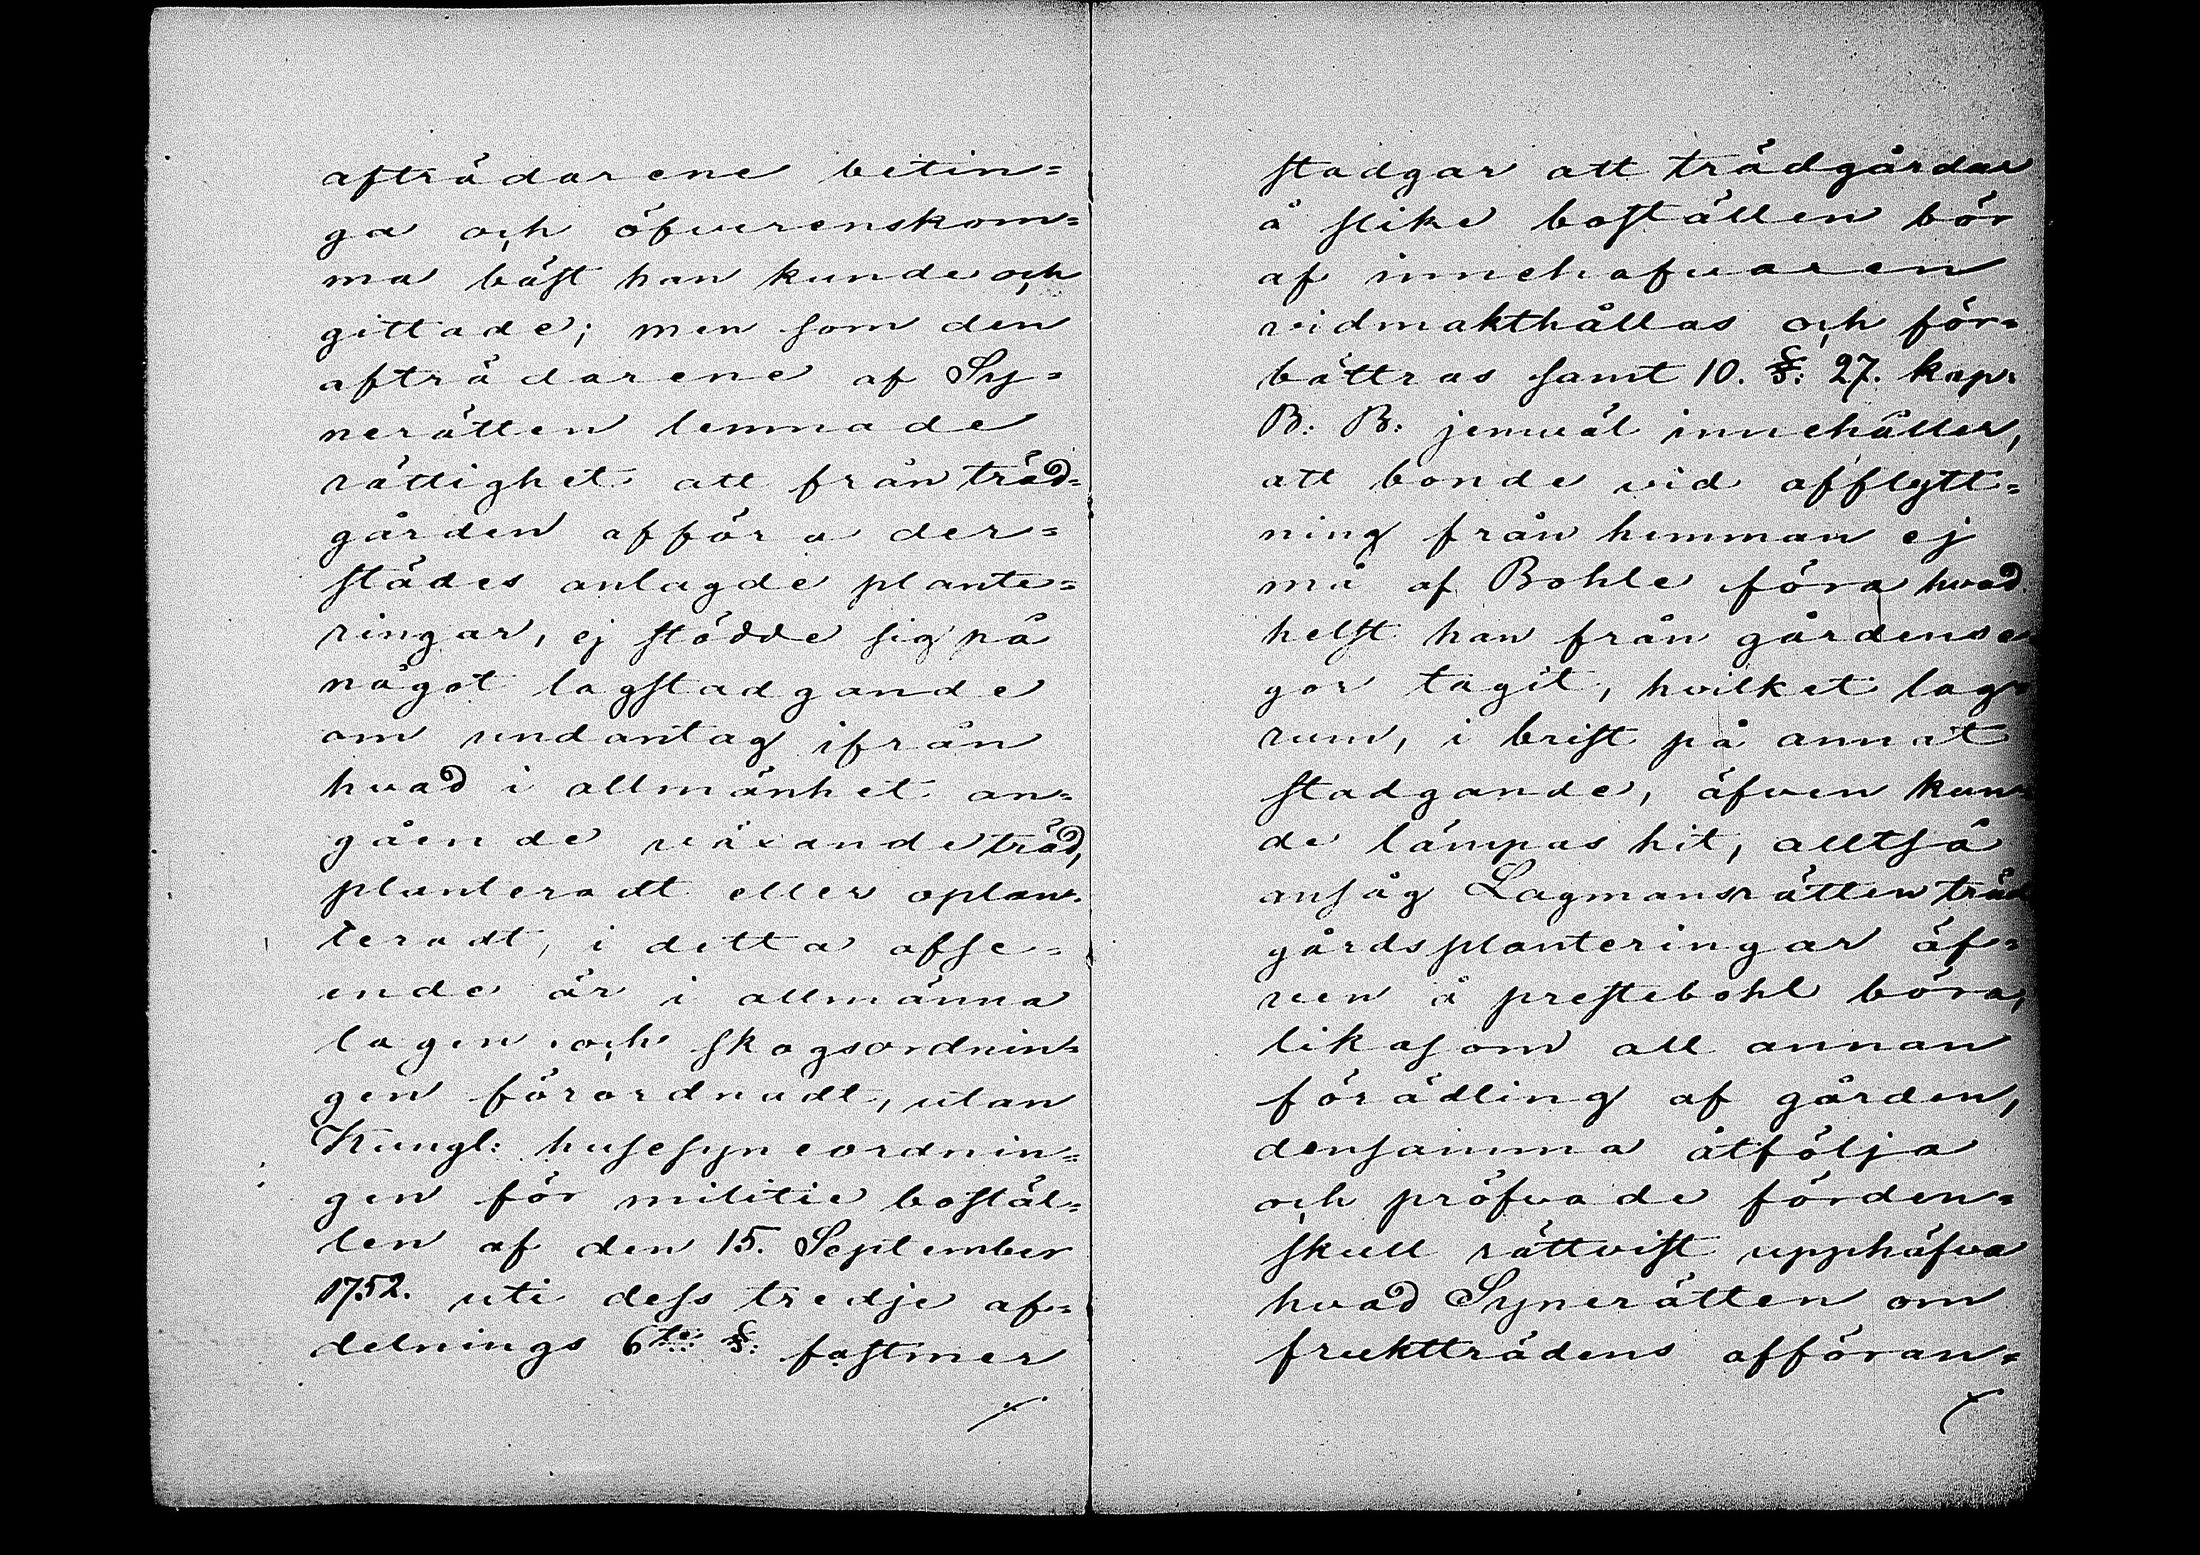 afträdarene betin=
ga och öfverenskom=
ma bäst han kunde och
gittade; men som den
afträdarene af Sy=
nerätten lemnade
rättighet att från träd=
gården afföra der=
städes anlagde plante=
ringar, ej stödde sig på
något lagstadgande
om undantag ifrån
hvad i allmänhet an=
gående växande träd,
planteradt eller oplan=
teradt, i detta afse=
ende är i allmänna
lagen och skogsordnin=
gen förordnadt, utan
Kungl: husesyneordnin=
gen för militie bostäl=
len af den 15. September
1752. uti dess tredje af=
delnings 6te §: fastmer
stadgar att trädgårdar
å slike boställen bör
af innehafvaren
vidmakthållas och för=
bättras samt 10. §: 27. kap:
B: B: jemväl innehåller,
att bonde vid afflytt=
ning från hemman ej
må af Bohle föra hvad
helst han från gårdens e=
gor tagit, hvilket lag=
rum, i brist på annat
stadgande, äfven kun=
de lämpas hit, alltså
ansåg Lagmansrätten träd
gårdsplanteringar äf=
ven å prestebohl böra,
likasom all annan
förädling af gården,
densamma åtfölja
och pröfvade förden=
skull rättvist upphäfva
hvad Synerätten om
fruktträdens afföran=